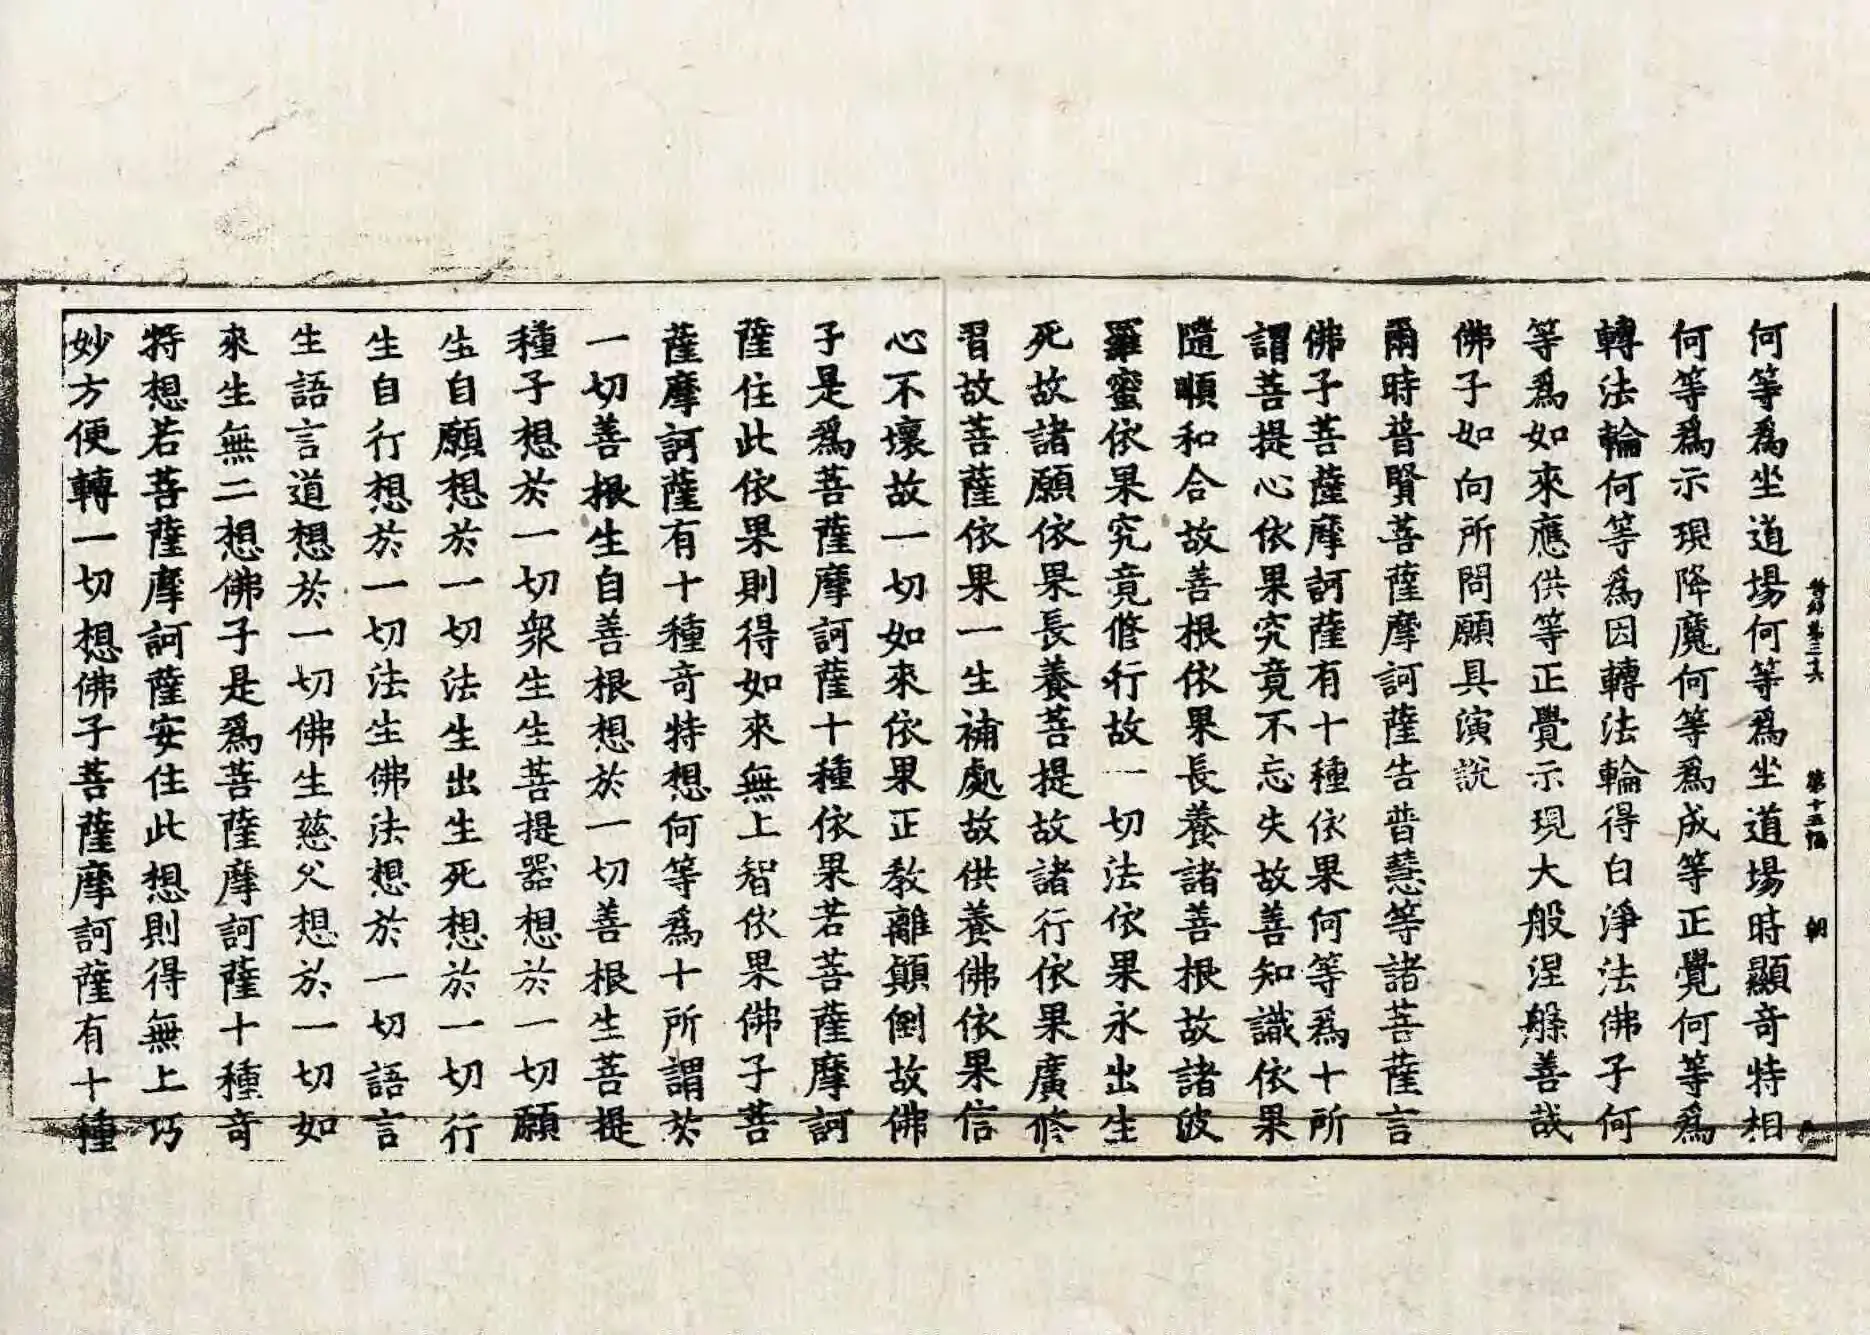 何等爲坐道場何等爲坐道場時顯奇特相
何等爲示現降魔何等爲成等正覺何等爲
轉法輪何等爲因轉法輪得白淨法佛子何
等爲如來應供等正覺示現大般涅槃善哉
佛子如向所問願具演說
爾時普賢菩薩摩訶薩告普慧等諸菩薩言
佛子菩薩摩訶薩有十種依果何等爲十所
謂菩提心依果究竟不忘失故善知識依果
隨順和合故善根依果長養諸善根故諸波
羅蜜依果究竟修行故一切法依果永出生
死故諸願依果長養菩提故諸行依果廣修
習故菩薩依果一生補處故供養佛依果信
心不壞故一切如來依果正教離顛倒故佛
子是爲菩薩摩訶薩十種依果若菩薩摩訶
薩住此依果則得如來無上智依果佛子菩
薩摩訶薩有十種奇特想何等爲十所謂於
一切善根生自善根想於一切善根生菩提
種子想於一切衆生生菩提器想於一切願
生自願想於一切法生出生死想於一切行
生自行想於一切法生佛法想於一切語言
生語言道想於一切佛生慈父想於一切如
來生無二想佛子是爲菩薩摩訶薩十種奇
特想若菩薩摩訶薩安住此想則得無上巧
妙方便轉一切想佛子菩薩摩訶薩有十種